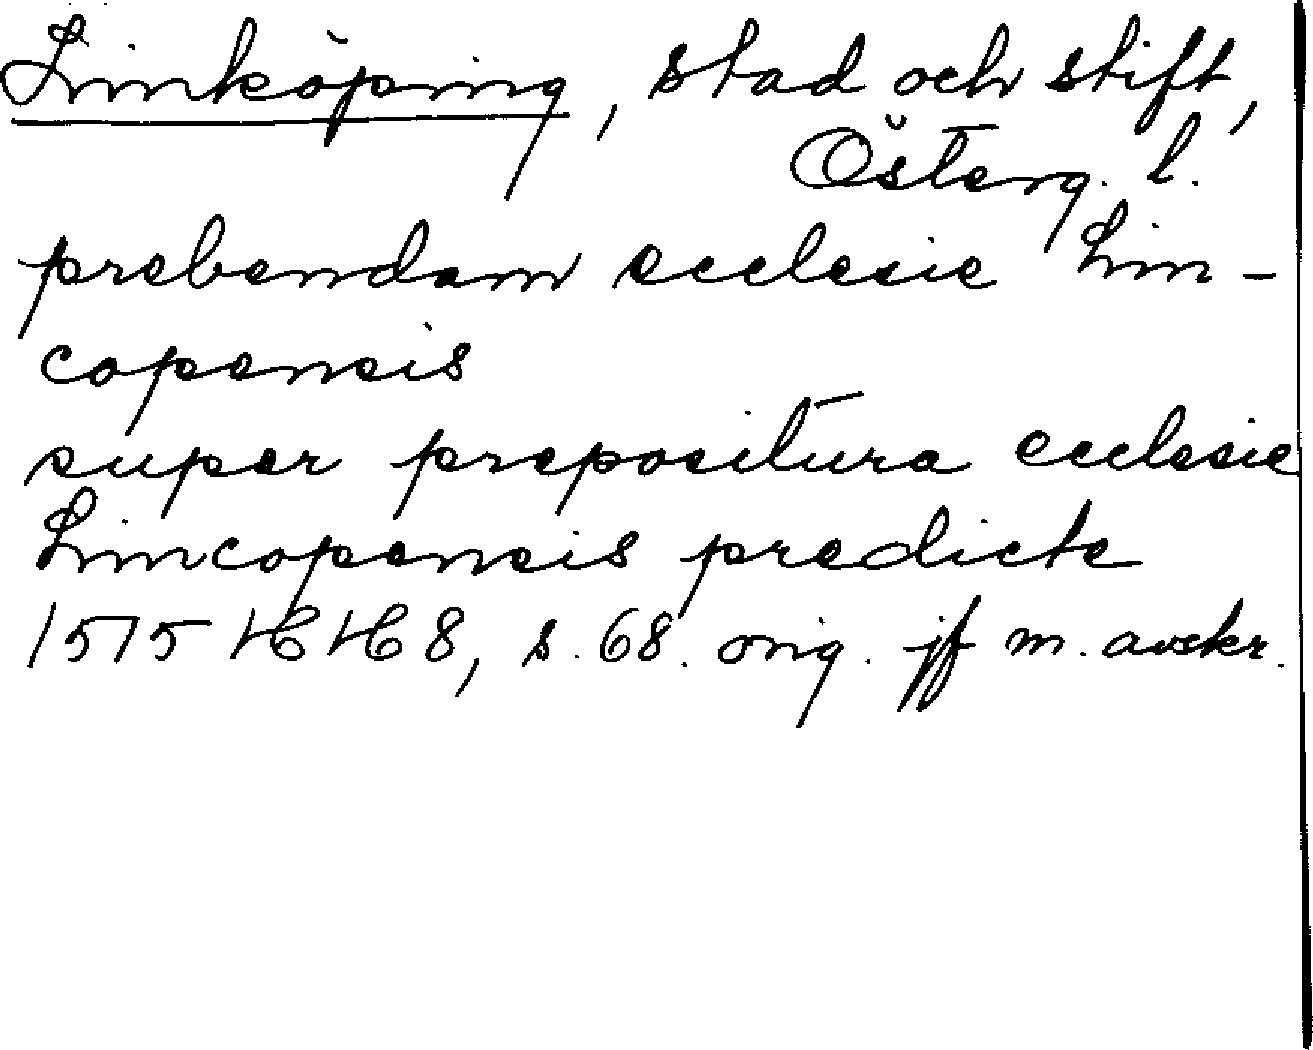 Linköping, stad och stift,
Österg. l.
prebendam ecclesie Lin-
copensis
super prepositura ecclesie
Lincopensis predicte
1515 HH 8, s. 68. orig. jf m. avskr.